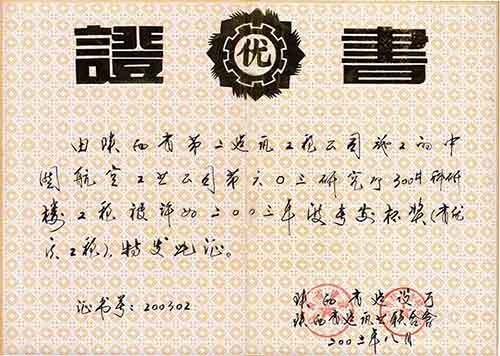 證 优 書
由陕西省第二建筑工程公司施工的中
国航空工业公司第六〇三研究所300#科研
楼工程被评为二00三年度长安杯奖(省优
质工程),特发此证。
证书号:200302
陕西省建设厅
陕西省建筑业联合会
二00三年八月